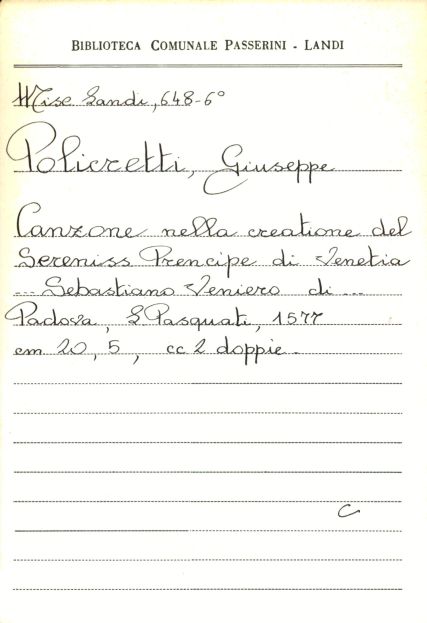 BIBLIOTECA COMUNALE PASSERINI - LANDI
Misc Landi, 648-6°
Policretti, Giuseppe
Canzone nella creatione del
Sereniss Prencipe di Venetia
... Sebastiano Veniero di ...
Padova, L Pasquati, 1577
cm 20, 5, cc 2 doppie.
C